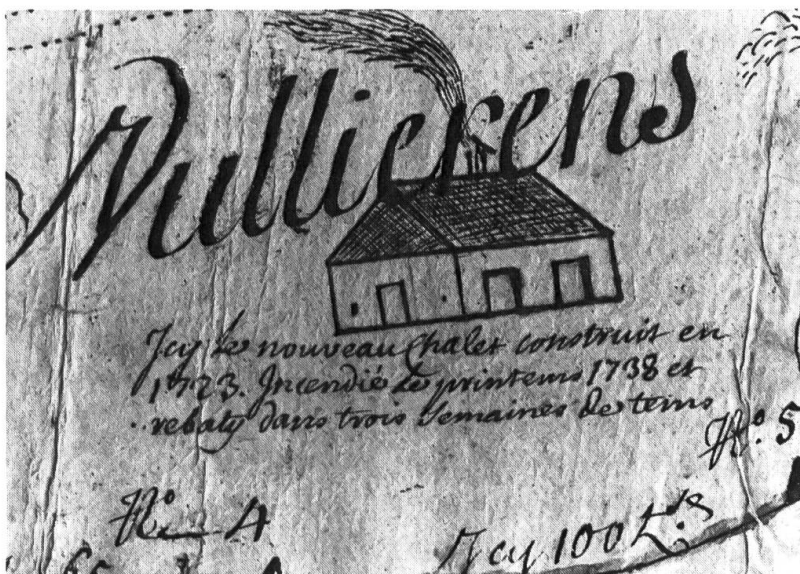 Vullierens
Jcy le nouveau chalet construit en
1723. Jncendié le printems 1738 et
rebaty dans trois semaines de tems
No. 5
No 4
Jcy 100 L.